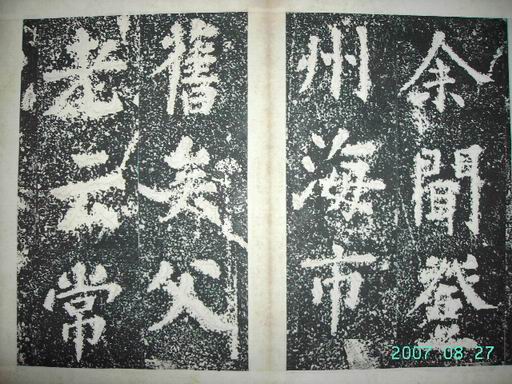 余聞登
州海市
舊矣父
老云常
2007 08 27